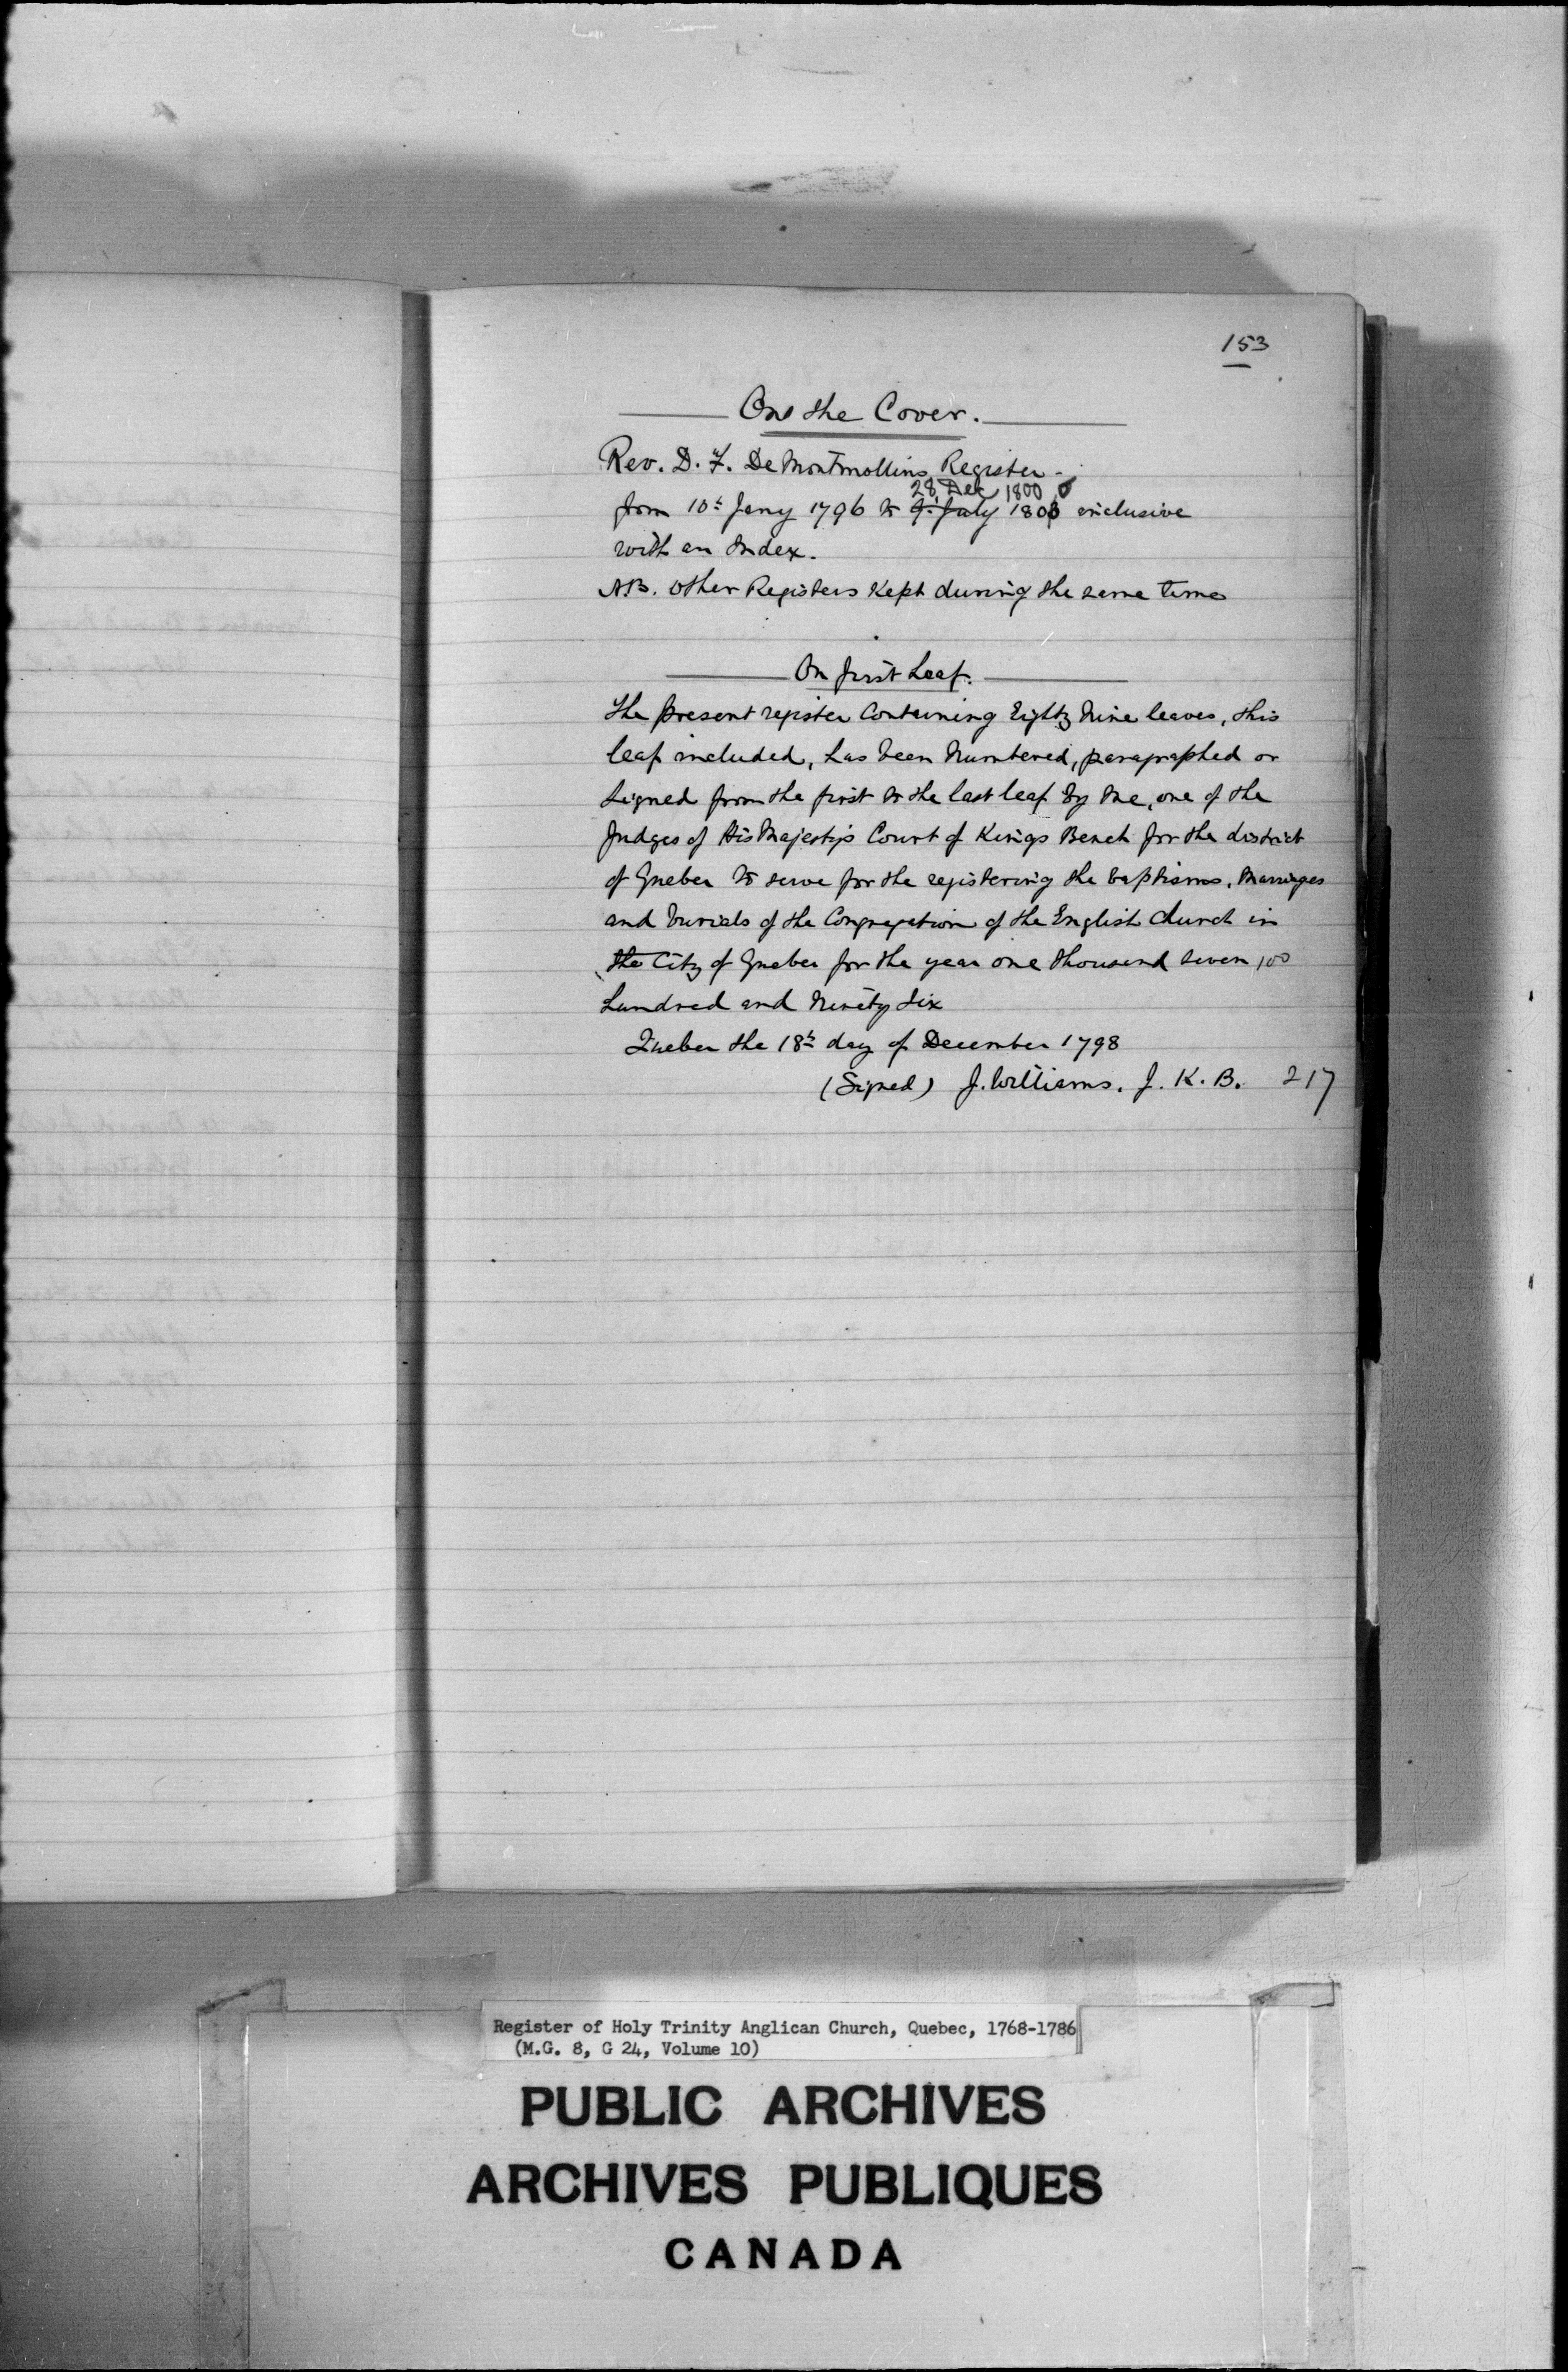 153
On the Cover.
Rev. D. F. DeMontmollins Register -
28 Dec 1800
from 10th Jany 1796 to 9. July 1800 inclusive
with an Index.
N.B. Other Registers Kept during the same time
On first Leaf.
The present register Containing Eighty Nine leaves, this
leaf included, has been Numbered, paragraphed or
Signed from the first to the last leaf by me, one of the
Judges of His Majestys Court of Kings Bench for the district
of Quebec to serve for the registering the baptisms, Marriages
and burials of the Congregation of the English Church in
the City of Quebec for the year one thousand seven 100
hundred and Ninety Six
Quebec the 18th day of December 1798
(Signed) J. Williams. J. K. B. 217
Register of Holy Trinity Anglican Church, Quebec, 1768-1786
(M.G. 8, G 24, Volume 10)
PUBLIC ARCHIVES
ARCHIVES PUBLIQUES
CANADA